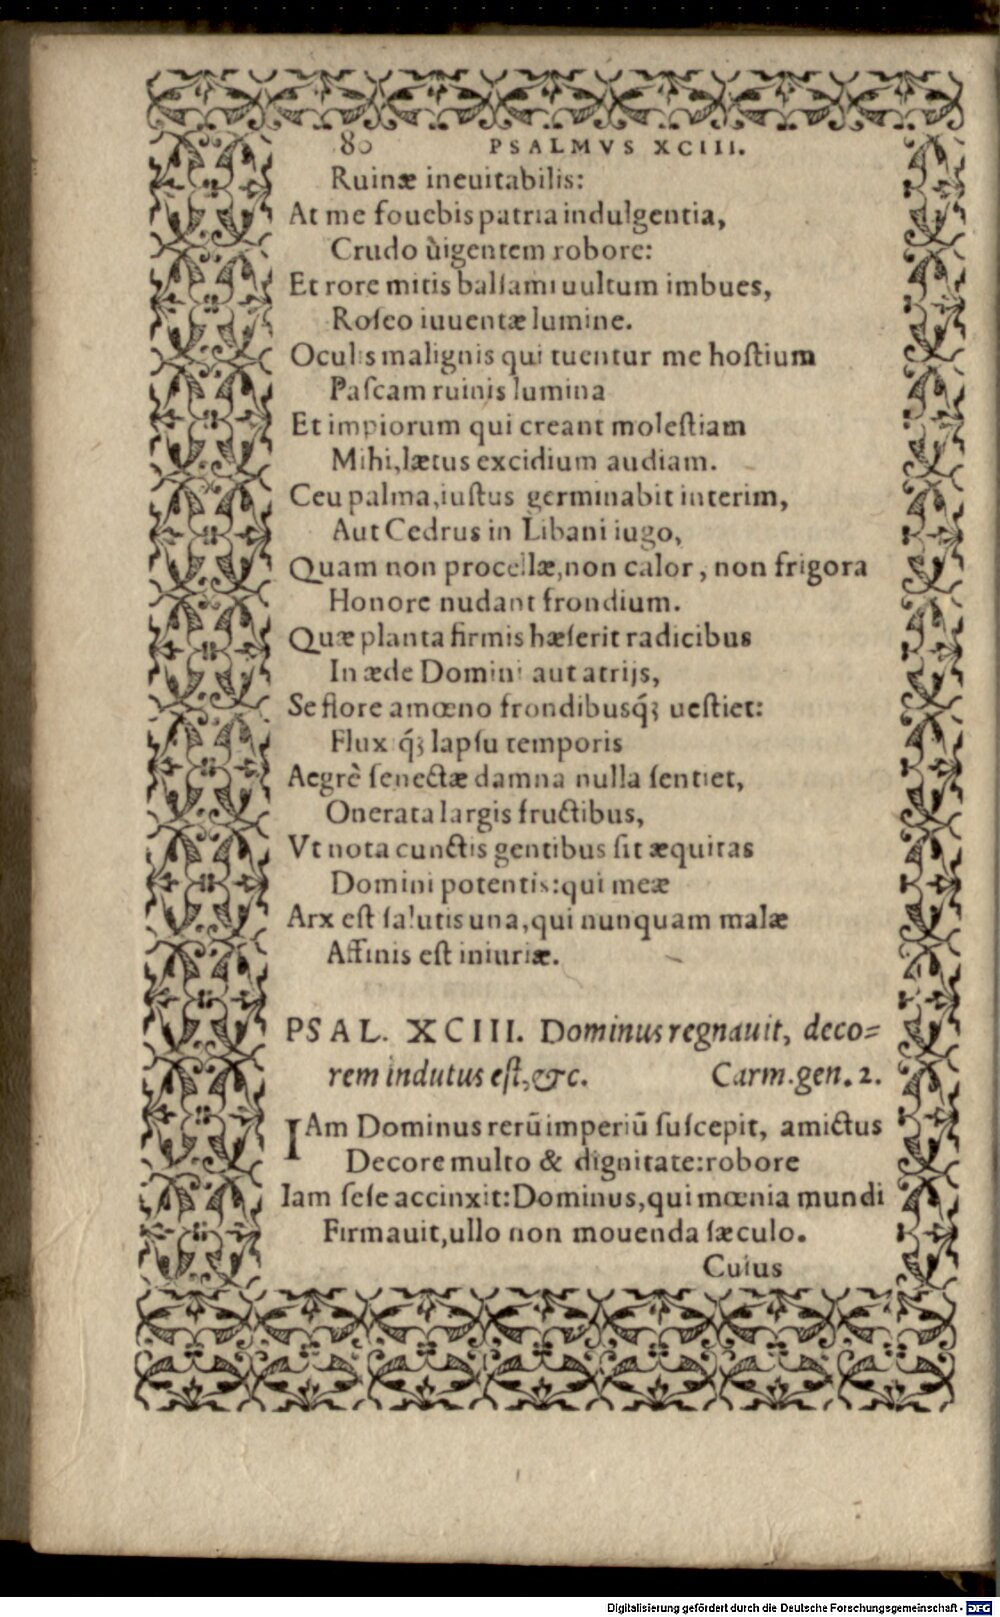 80 PSALMVS XCIII.
Ruinæ ineuitabilis:
At me fouebis patria indulgentia,
Crudo ùigentem robore:
Et rore mitis balſami uultum imbues,
Roſeo iuuentæ lumine.
Oculis malignis qui tuentur me hoſtium
Paſcam ruinis lumina
Et impiorum qui creant moleſtiam
Mihi, lætus excidium audiam.
Ceu palma, iuſtus germinabit interim,
Aut Cedrus in Libani iugo,
Quam non procellæ, non calor, non frigora
Honore nudant frondium.
Quæ planta firmis hæſerit radicibus
In æde Domini aut atrijs,
Se flore amœno frondibusq́ꝫ ueſtiet:
Fluxiq́ꝫ lapſu temporis
Aegrè ſenectæ damna nulla ſentiet,
Onerata largis fructibus,
Vt nota cunctis gentibus ſit æquitas
Domini potentis: qui meæ
Arx eſt ſalutis una, qui nunquam malæ
Affinis eſt iniuriæ.
PSAL. XCIII. Dominus regnauit, deco=
rem indutus eſt, &c. Carm. gen. 2.
IAm Dominus rerū imperiū ſuſcepit, amictus
Decore multo & dignitate: robore
Iam ſeſe accinxit: Dominus, qui mœnia mundi
Firmauit, ullo non mouenda ſæculo.
Cuius
Digitalisierung gefördert durch die Deutsche Forschungsgemeinschaft - DFG